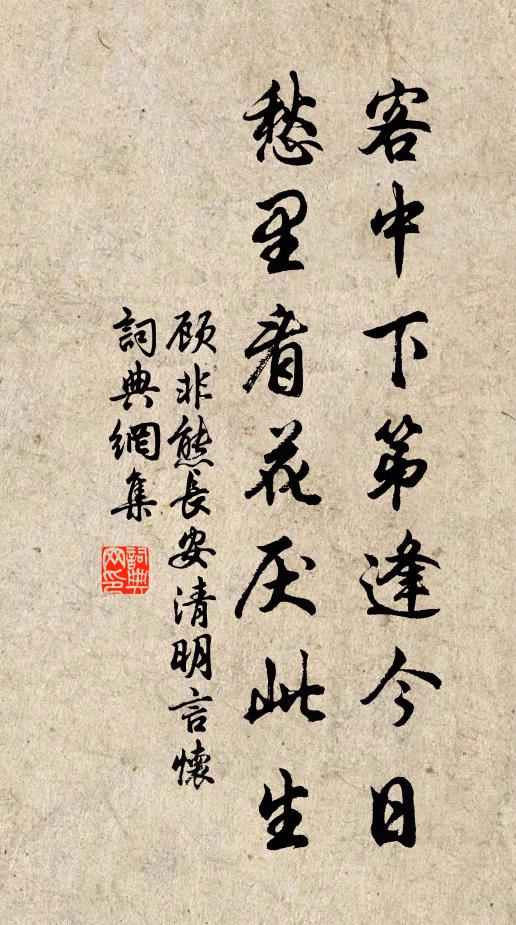 客中下第逢今日
愁里看花厌此生
顾非熊長安清明言懷
詞典網集
詞典网印